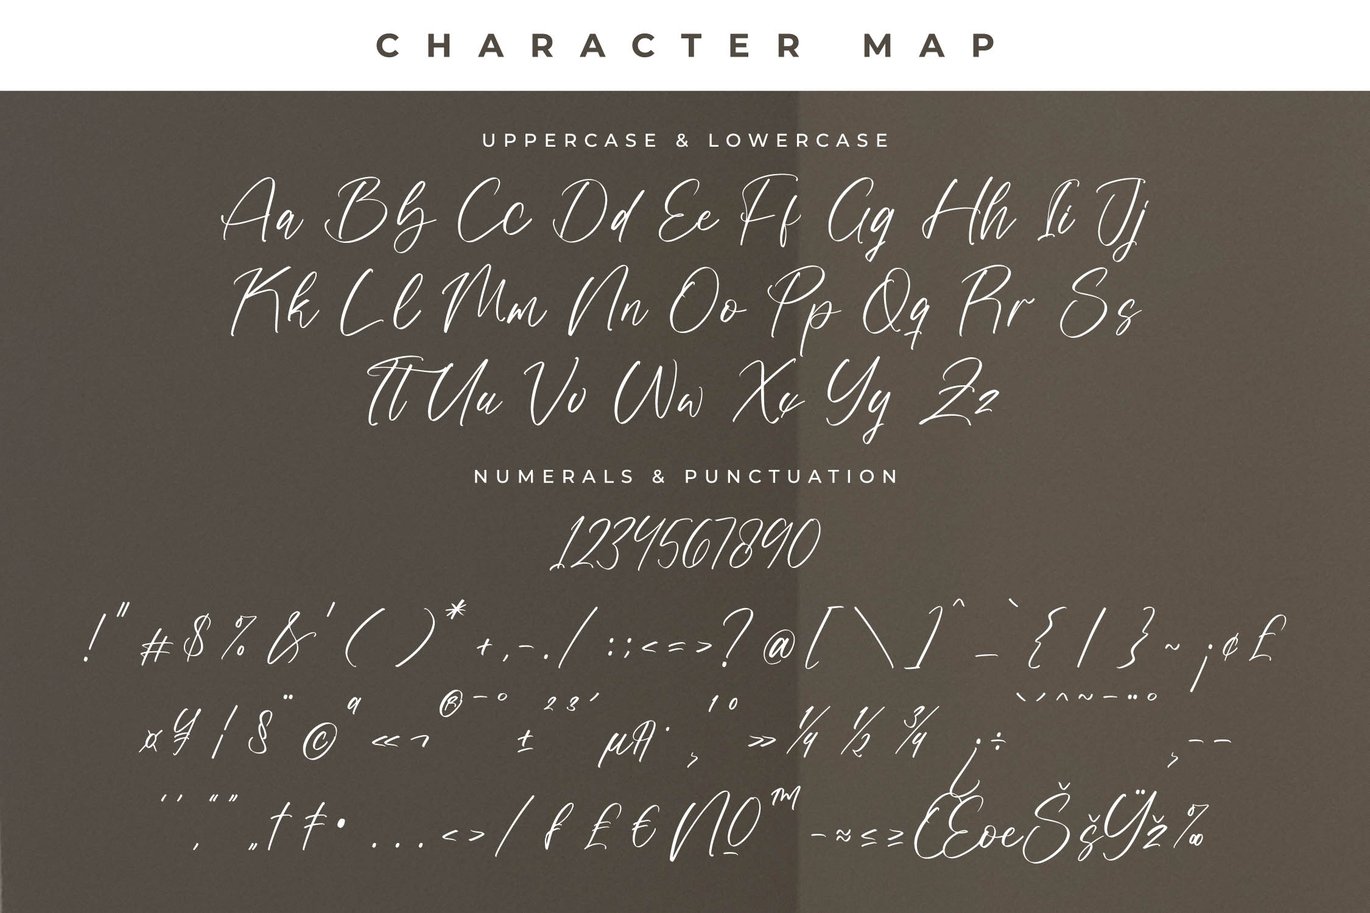 CHARACTER MAP
UPPERCASE & LOWERCASE
Aa Bb Cc Dd Ee Ff Gg Hh Ii Jj
Kk Ll Mm Nn Oo Pp Qq Rr Ss
Tt Uu Vv Ww Xx Yy Zz
NUMERALS & PUNCTUATION
1234567890
! " # $ % & ' ( ) * + , - . / : ; < = > ? @ [ \ ] ^ _ ` { | } ~ ¡ ¢ £
¤ ¥ ¦ § ¨ © ª « ¬ ® ¯ ° ± ² ³ ´ µ ¶ · ¸ ¹ º » ¼ ½ ¾ ¿ ÷ ` ´ ˆ ˜ ¯ ¨ ° ¸ – —
‘ ’ ‚ “ ” „ † ‡ • ... ‹ › ⁄ ƒ ₤ € № ™ − ≈ ≤ ≥ Œ œ Š š Ÿ ž ‰